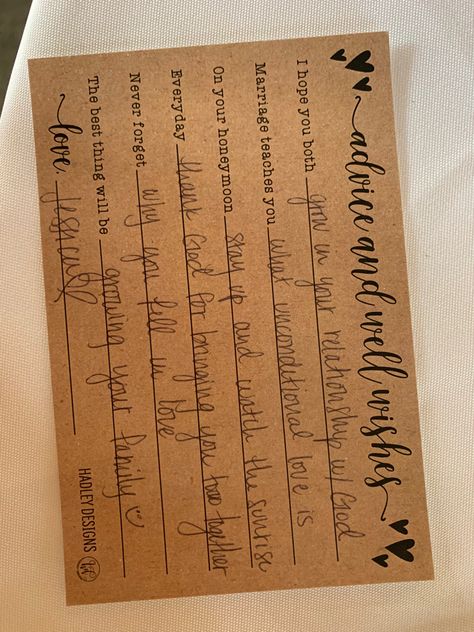 advice and well wishes
I hope you both grow in your relationship w/ God
Marriage teaches you what unconditional love is
On your honeymoon stay up and watch the sunrise
Everyday thank God for bringing you two together
Never forget why you fell in love
The best thing will be growing your family
love,
HADLEY DESIGNS